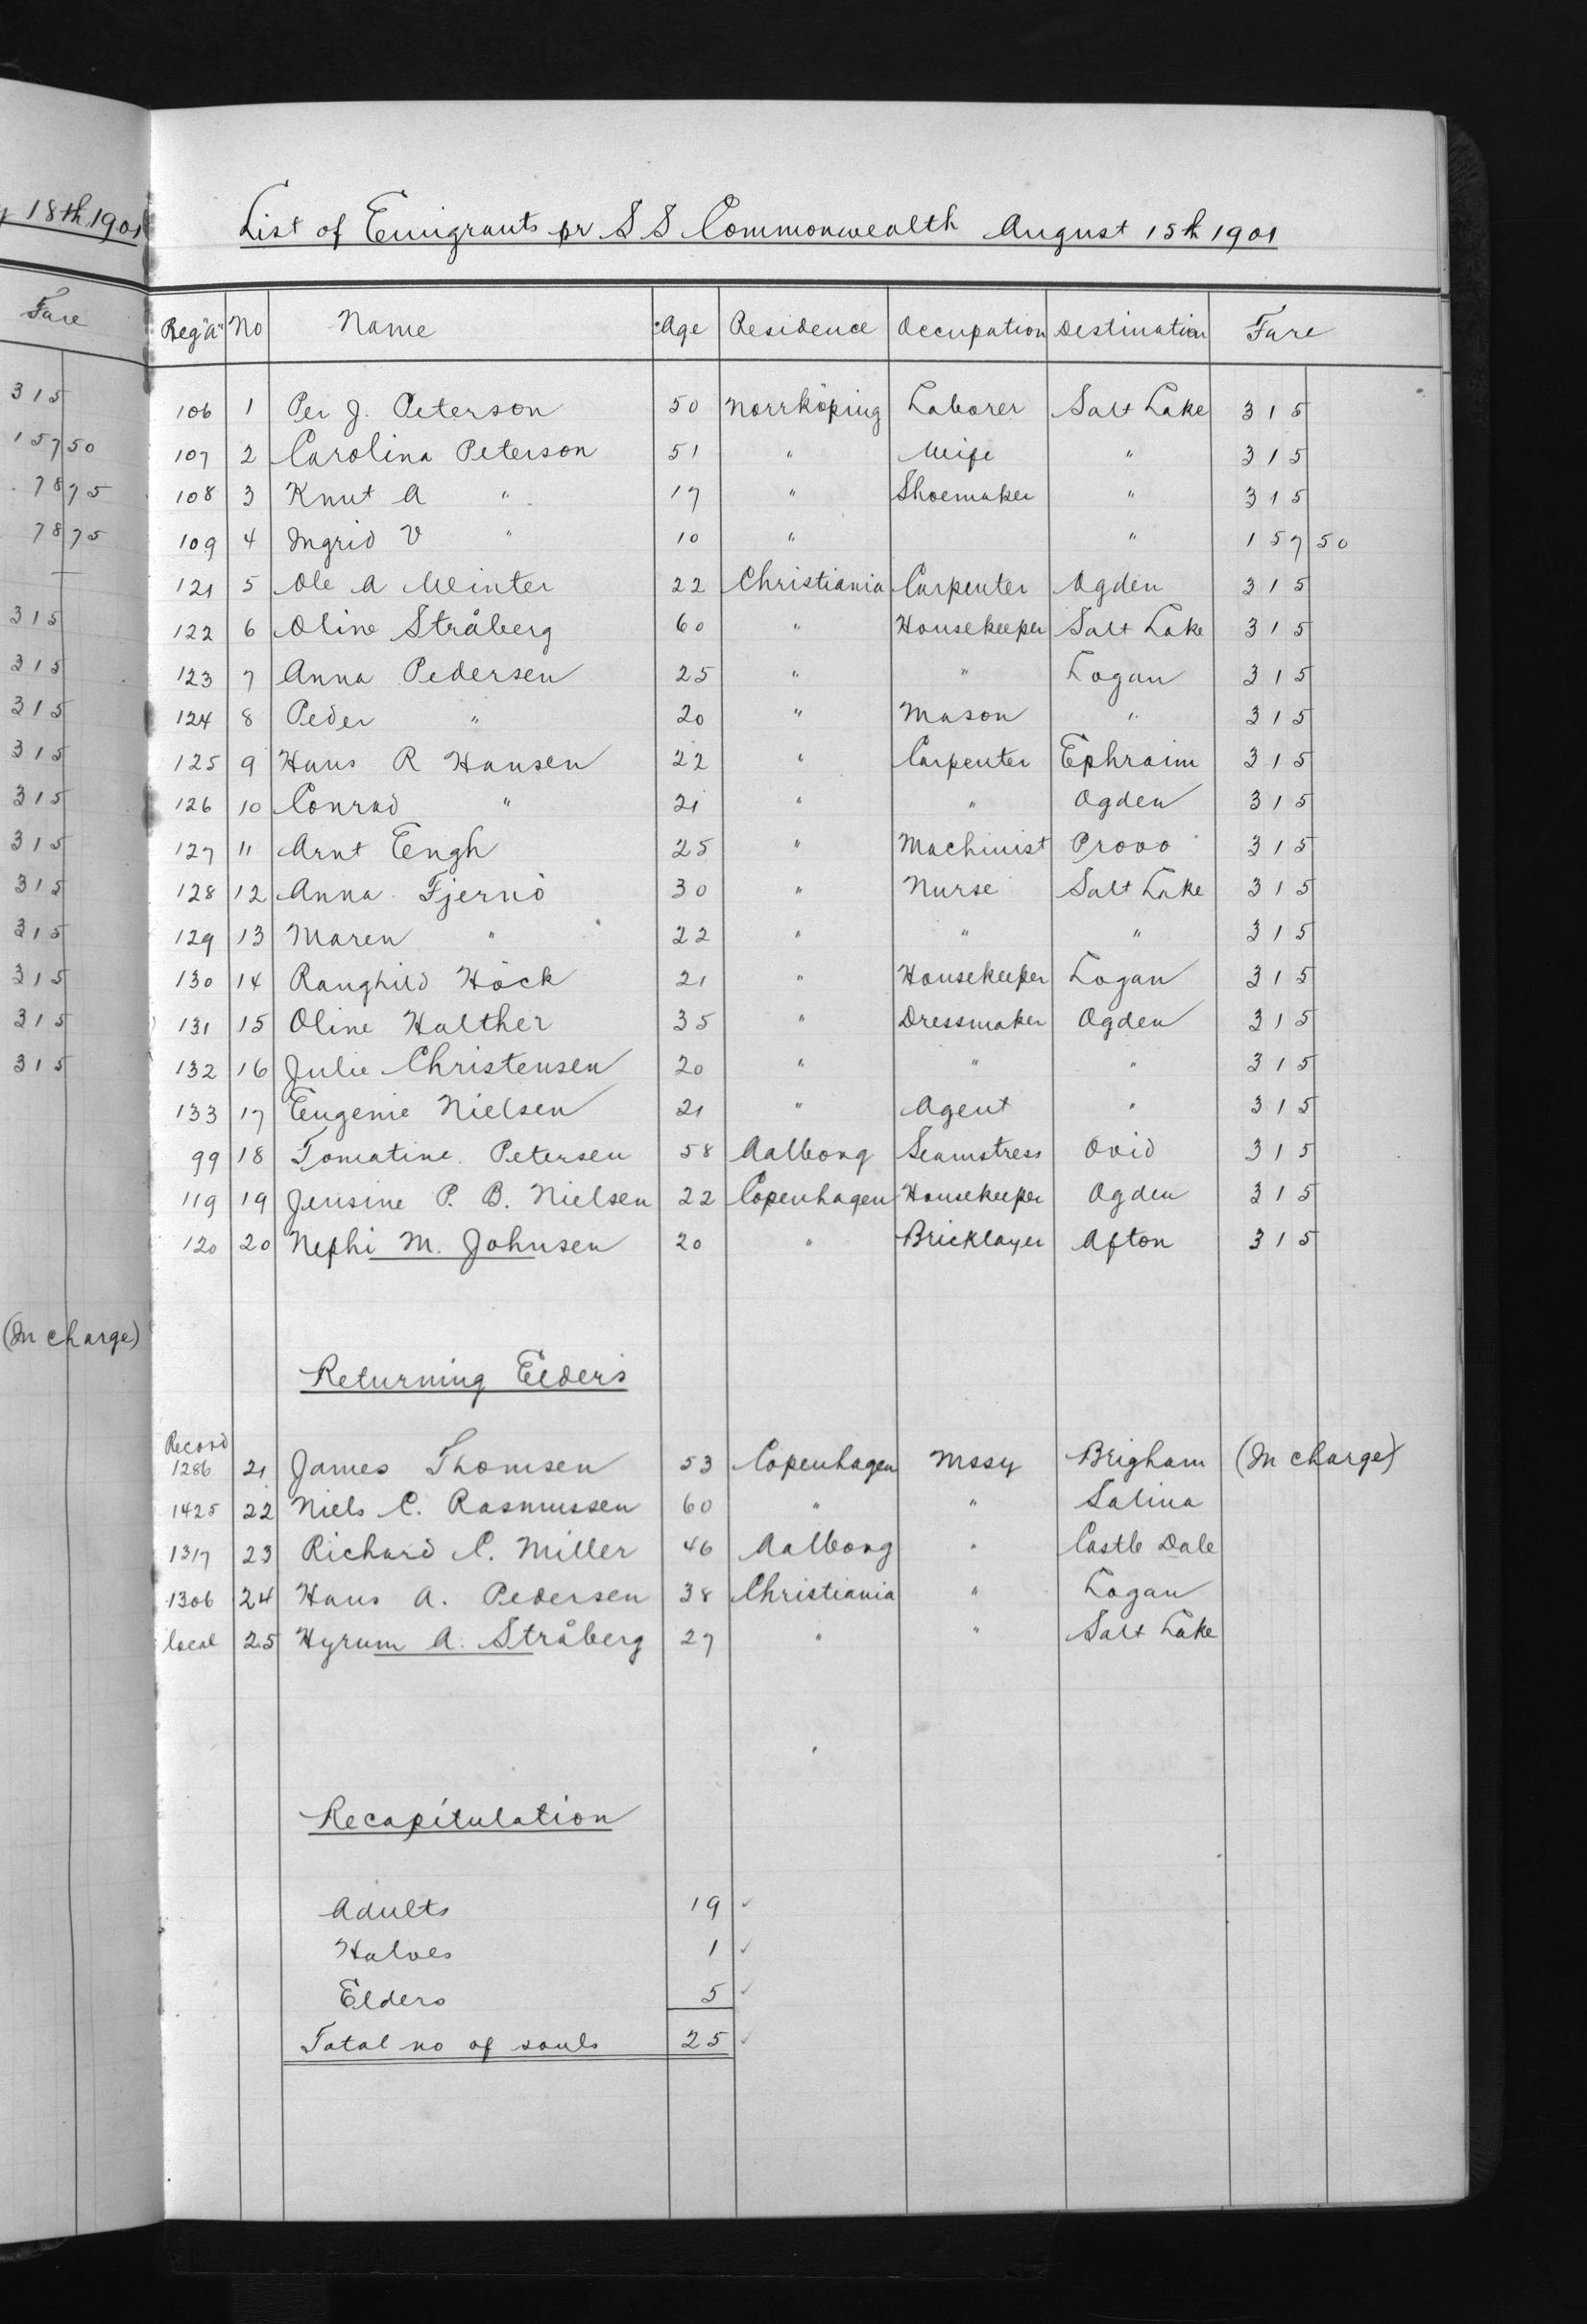 y 18th 1901
Fare
315
157 50
78 75
78 75
—
315
315
315
315
315
315
315
315
315
315
315
(In charge)
List of Emigrants pr S S Commonwealth August 15th 1901
Reg "A" No Name Age Residence Occupation Destination Fare
106 1 Per J. Peterson 50 Norrköping Laborer Salt Lake 315
107 2 Carolina Peterson 51 " Wife " 315
108 3 Knut A " 17 " Shoemaker " 315
109 4 Ingrid V " 10 " " 157 50
121 5 Ole A Winter 22 Christiania Carpenter Ogden 315
122 6 Oline Stråberg 60 " Housekeeper Salt Lake 315
123 7 Anna Pedersen 25 " " Logan 315
124 8 Peder " 20 " Mason " 315
125 9 Hans R Hansen 22 " Carpenter Ephraim 315
126 10 Conrad " 21 " " Ogden 315
127 11 Arnt Engh 25 " Machinist Provo 315
128 12 Anna Fjernö 30 " Nurse Salt Lake 315
129 13 Maren " 22 " " " 315
130 14 Ranghild Höck 21 " Housekeeper Logan 315
131 15 Oline Walther 35 " Dressmaker Ogden 315
132 16 Julie Christensen 20 " " " 315
133 17 Eugenie Nielsen 21 " Agent " 315
99 18 Tomatine Petersen 58 Aalborg Seamstress Ovid 315
119 19 Jensine P. B. Nielsen 22 Copenhagen Housekeeper Ogden 315
120 20 Nephi M. Johnsen 20 " Bricklayer Afton 315
Returning Elders
Record
1286 21 James Thomsen 53 Copenhagen Mssy Brigham (In charge)
1425 22 Niels C. Rasmussen 60 " " Salina
1317 23 Richard C. Miller 46 Aalborg " Castle Dale
1306 24 Hans A. Pedersen 38 Christiania " Logan
local 25 Hyrum A. Stråberg 27 " " Salt Lake
Recapitulation
Adults 19 ✓
Halves 1 ✓
Elders 5 ✓
Total no of souls 25 ✓